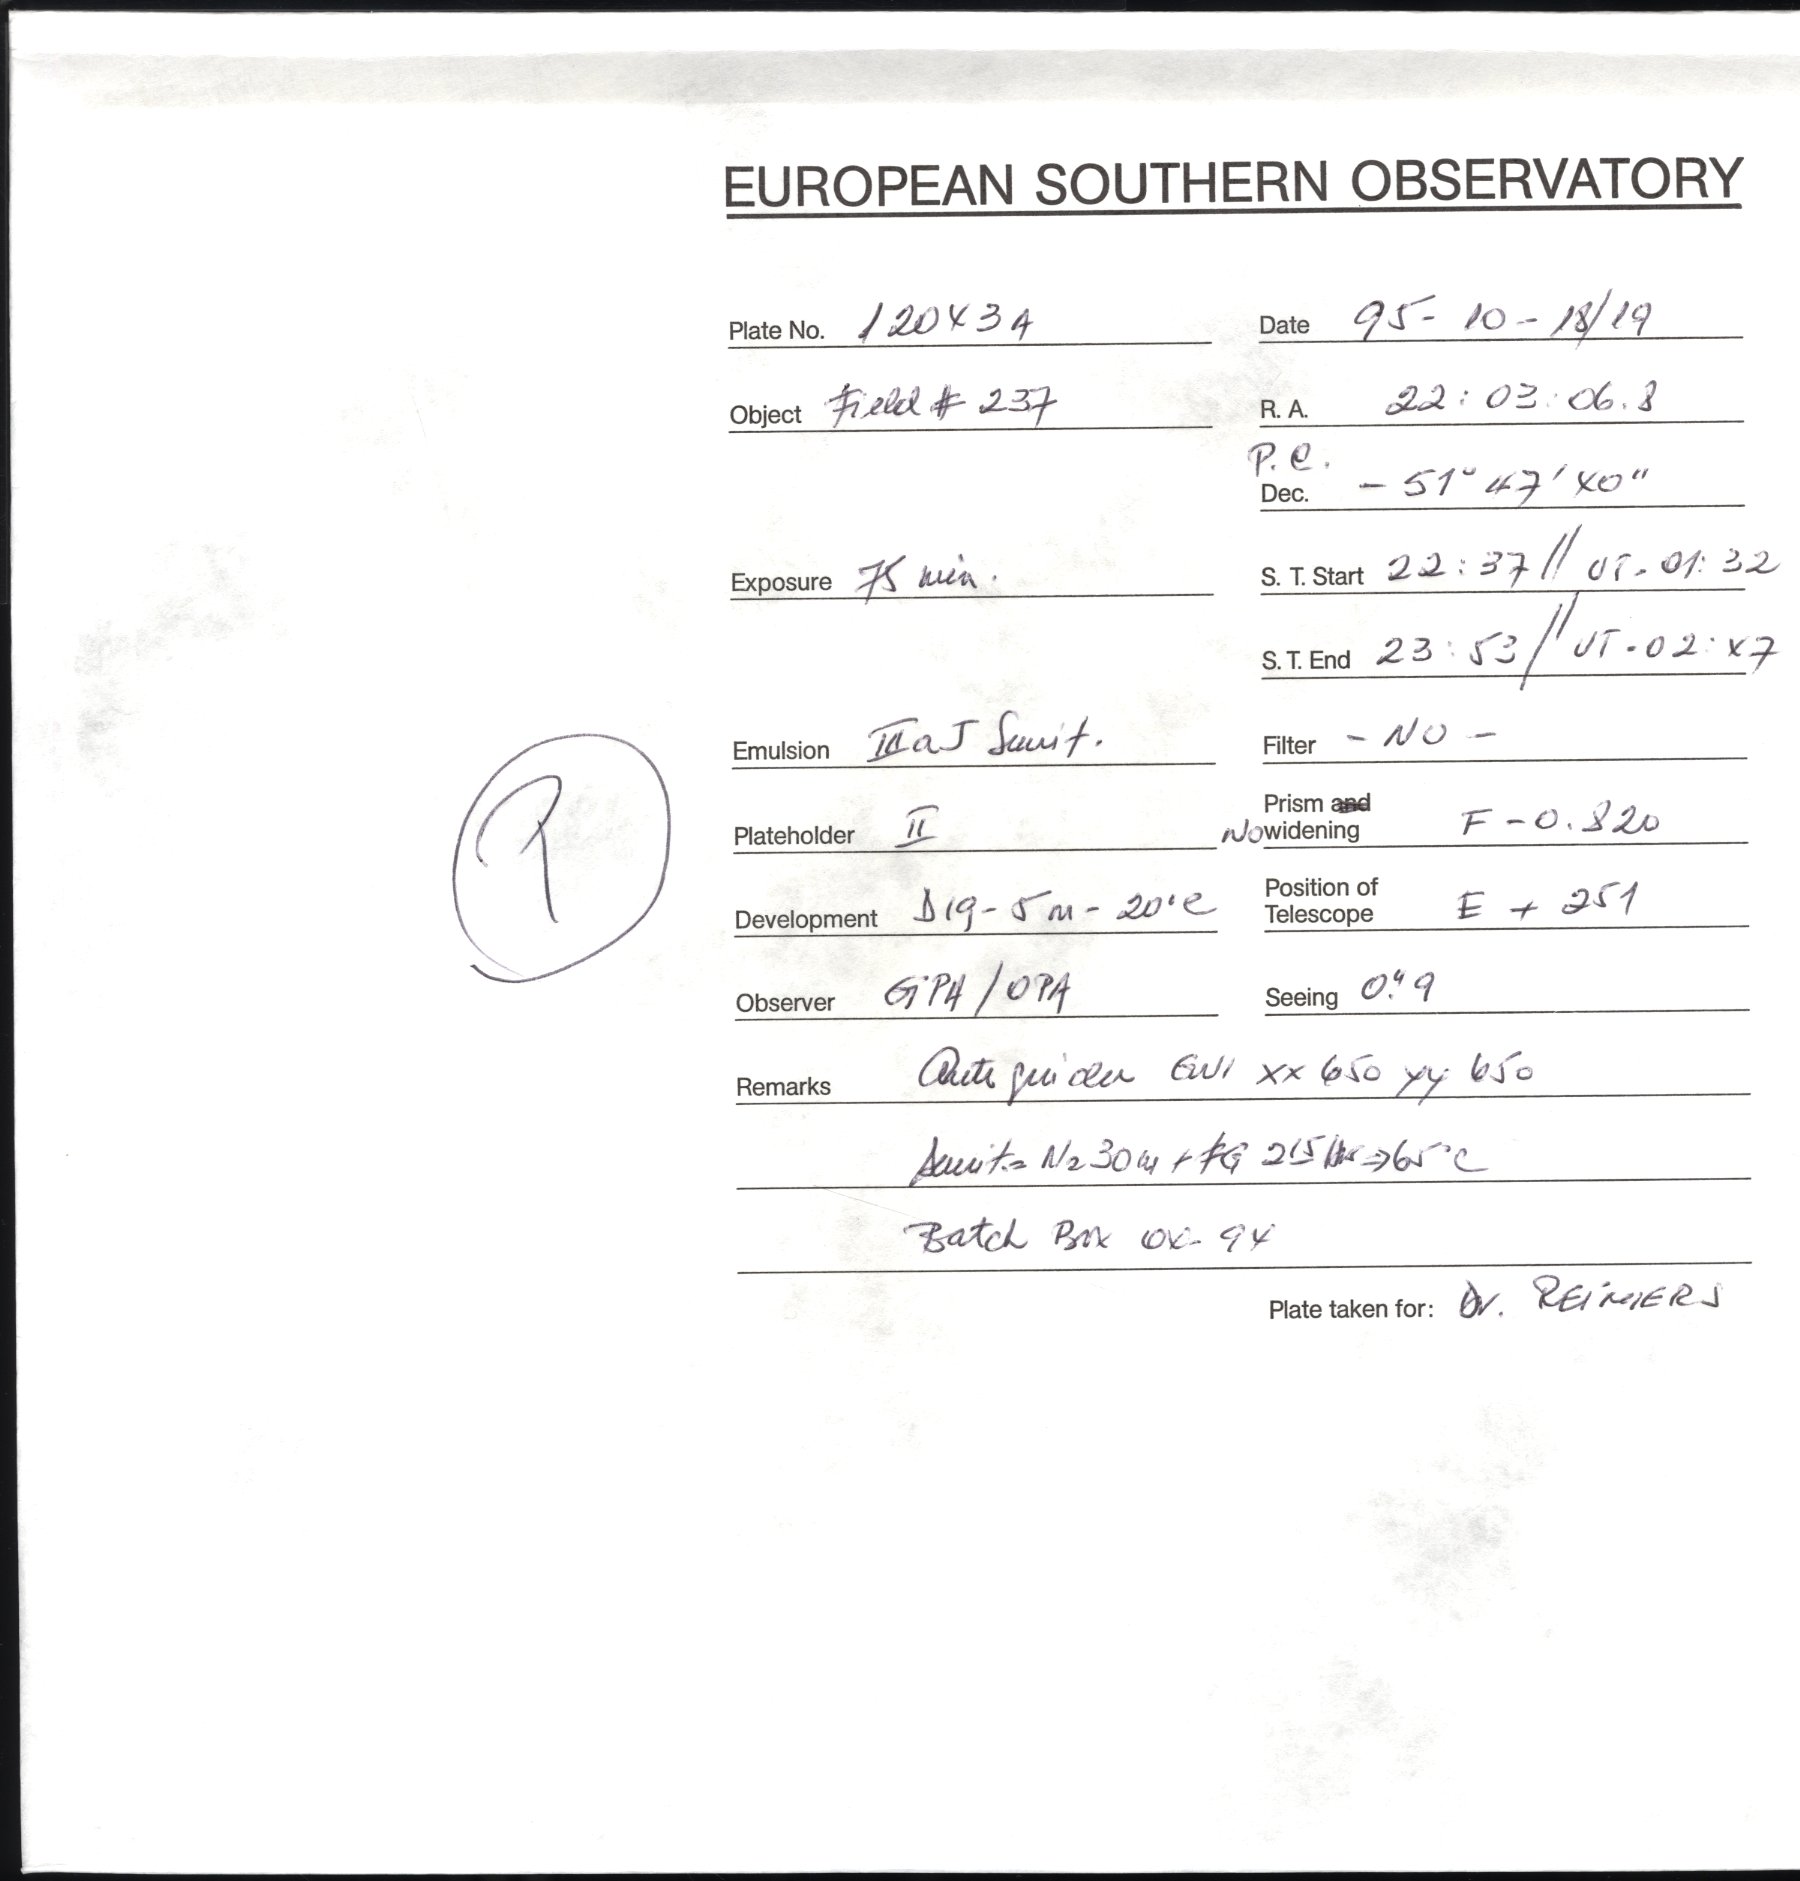 EUROPEAN SOUTHERN OBSERVATORY
Plate No. 12043A Date 95-10-18/19
Object Field # 237 R. A. 22:03:06.8
P.C.
Dec. - 51° 47' 40"
Exposure 75 min. S. T. Start 22:37 // UT-01:32
S. T. End 23:53 // UT-02:47
Emulsion IIIaJ Filter - NO -
Prism and
Plateholder II No widening F-0.820
Position of
Development D19-5m-20°C Telescope E + 251
R
Observer GPA/OPA Seeing 0."9
Remarks Autoguider xx 650 yy 650
N2 30m + FG 215 → 65°C
Batch Box 94
Plate taken for: Dr. REIMERS